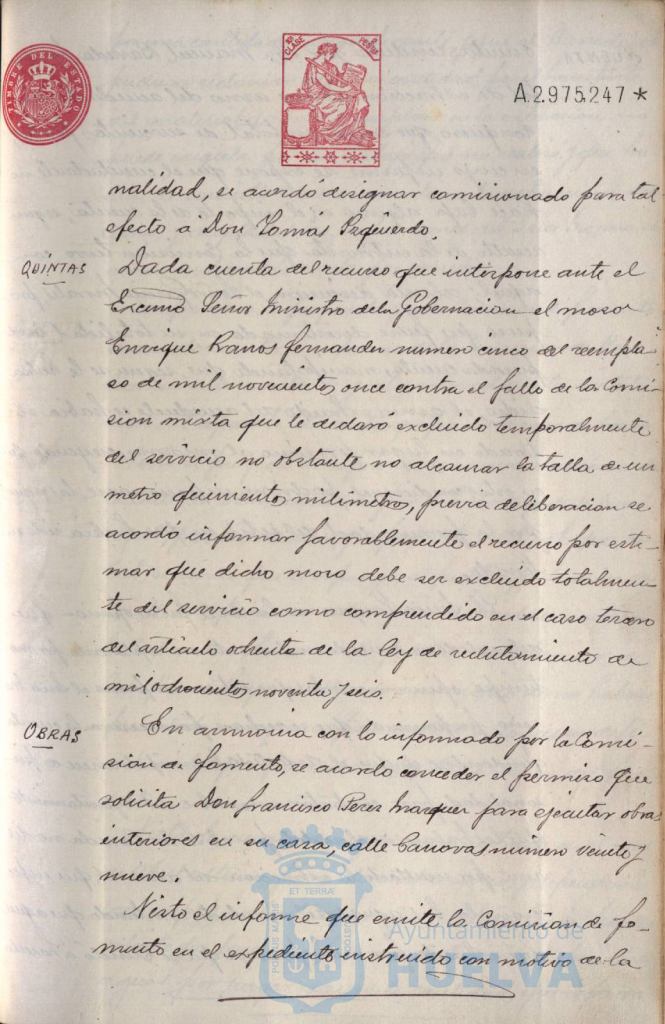 TIMBRE DEL ESTADO
10ª CLASE
A.2.975.247 *
nalidad, se acordó designar comisionado para tal
efecto á Don Tomás Yzquierdo.
QUINTAS
Dada cuenta del recurso que interpone ante el
Excmo Señor Ministro de la Gobernacion el moso
Enrique Ramos Fernandez numero cinco del reempla-
so de mil novecientos once contra el fallo de la Comi-
sion mixta que le declaró excluido temporalmente
del servicio no obstante no alcanzar la talla de un
metro quinientos milimetros, previa deliberacion se
acordó informar favorablemente el recurso por esti-
mar que dicho moso debe ser excluido totalmen-
te del servicio como comprendido en el caso tercero
del articulo ochenta de la ley de reclutamiento de
mil ochocientos noventa y seis.
OBRAS
En armonia con lo informado por la Comi-
sion de fomento, se acordó conceder el permiso que
solicita Don Francisco Perez Marquez para ejecutar obras
interiores en su casa, calle Canovas numero veinte y
nueve.
Visto el informe que emite la Comision de fo-
mento en el expediente instruido con motivo de la
ET TERRÆ
PORTUS MARIS
CUSTODIA
Ayuntamiento de
HUELVA